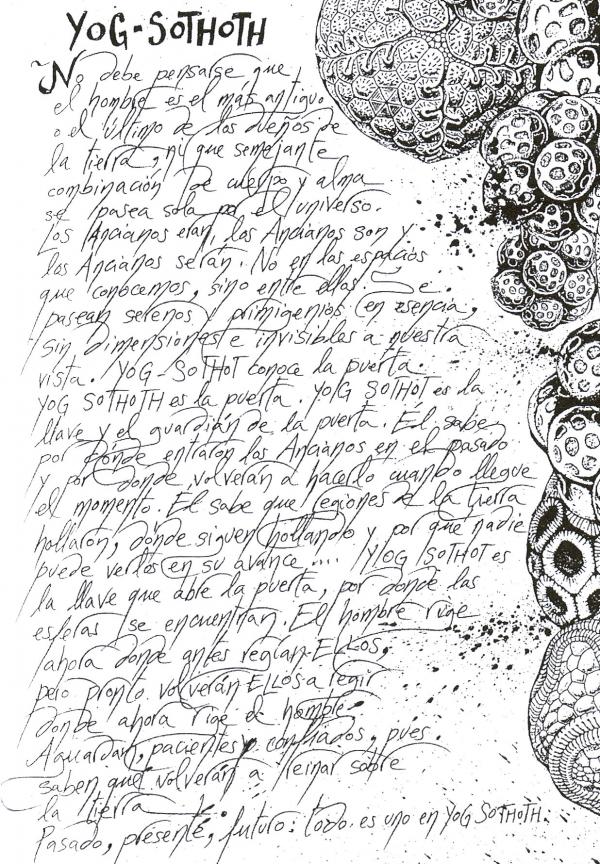 YOG-SOTHOTH
No debe pensarse que
el hombre es el más antiguo
o el último de los dueños de
la tierra, ni que semejante
combinación de cuerpo y alma
se pasea sola por el universo.
Los Ancianos eran, los Ancianos son y
los Ancianos serán. No en los espacios
que conocemos, sino entre ellos. Se
pasean serenos y primigenios en esencia,
sin dimensiones e invisibles a nuestra
vista. YOG-SOTHOT conoce la puerta.
YOG SOTHOTH es la puerta. YOG SOTHOT es la
llave y el guardián de la puerta. Él sabe
por donde entraron los Ancianos en el pasado
y por donde volverán a hacerlo cuando llegue
el momento. Él sabe que regiones de la tierra
hollaron, dónde siguen hollando y por qué nadie
puede verlos en su avance.... YOG SOTHOT es
la llave que abre la puerta, por donde las
esferas se encuentran. El hombre rige
ahora donde antes regían ELLOS,
pero pronto volverán ELLOS a regir
donde ahora rige el hombre.
Aguardan, pacientes y confiados, pues
saben que volverán a reinar sobre
la tierra.
Pasado, presente, futuro: todo es uno en YOG SOTHOTH.